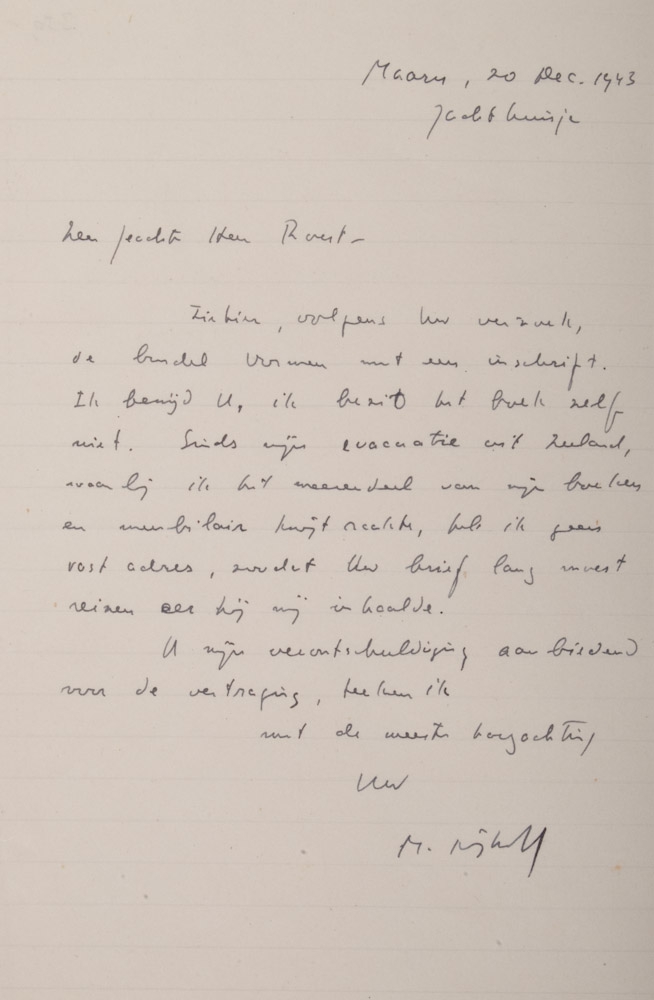 Maarn, 20 Dec. 1943
Jachthuisje
Zeer geachte Heer Roest –
Ziehier, volgens Uw verzoek,
de bundel Vormen met een inschrift.
Ik benijd U, ik bezit het boek zelf
niet. Sinds mijn evacuatie uit Zeeland,
waarbij ik het meerendeel van mijn boeken
en meubilair kwijt raakte, heb ik geen
vast adres, zoodat Uw brief lang moest
reizen eer hij mij inhaalde.
U mijn verontschuldiging aanbiedend
voor de vertraging, teeken ik
met de meeste hoogachting
Uw
M. Nijhoff